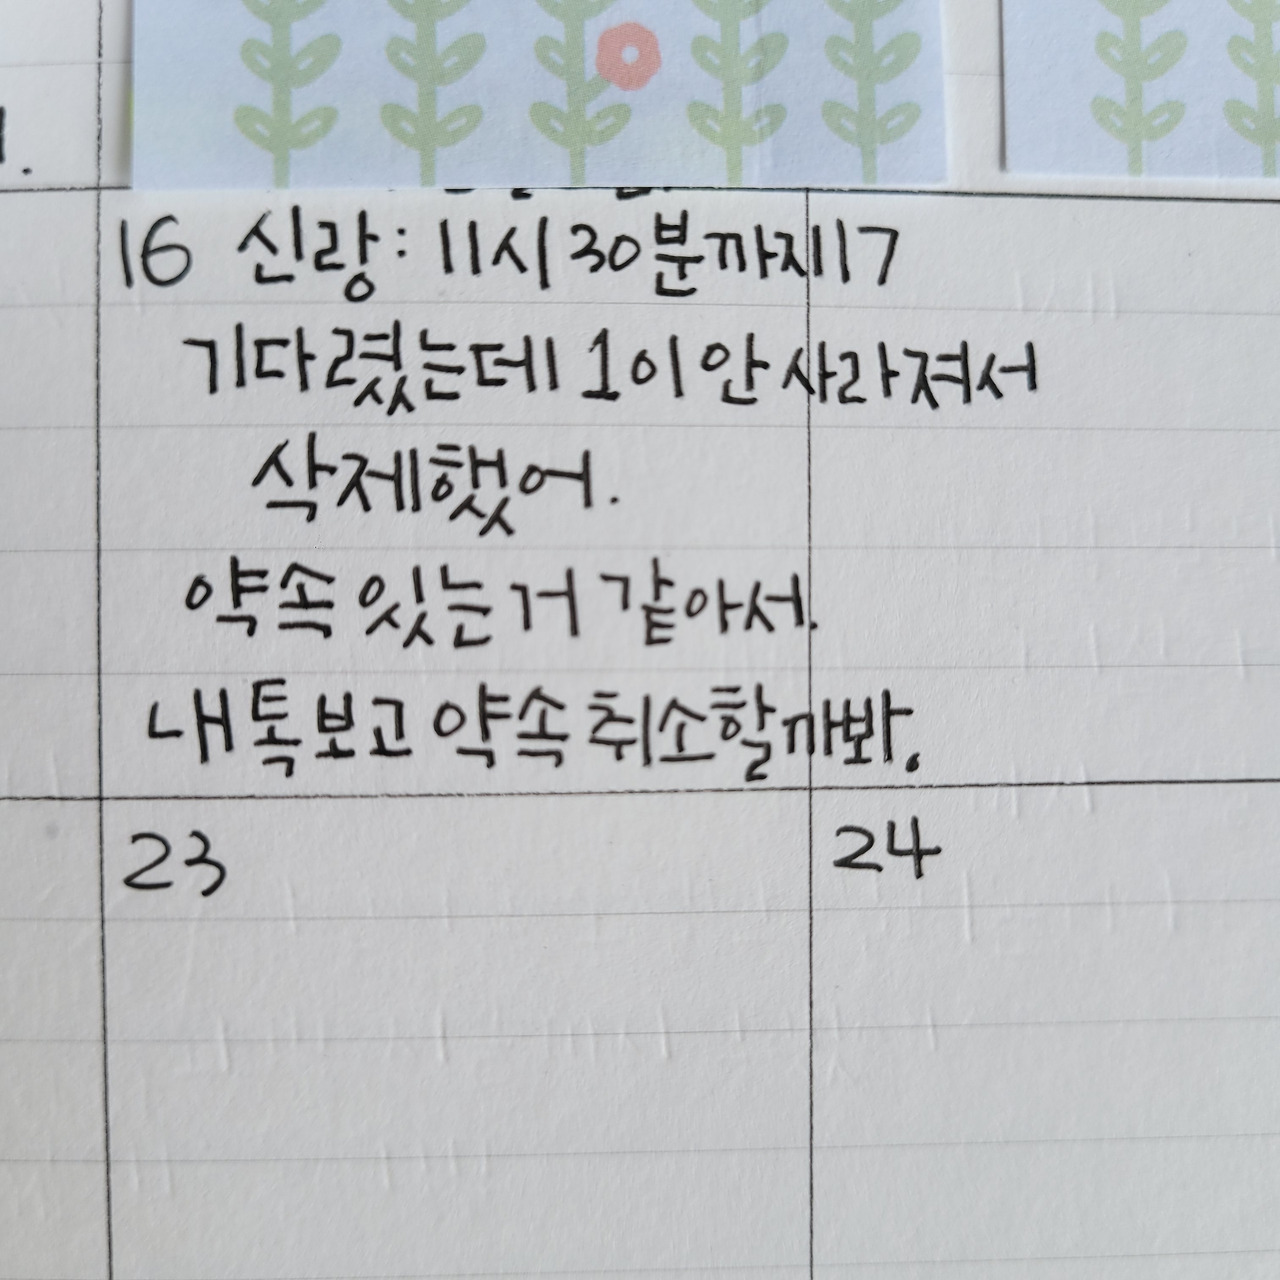 16 신랑: 11시 30분까지 17
기다렸는데 1이 안 사라져서
삭제했어.
약속 있는 거 같아서.
내 톡 보고 약속 취소할까봐.
23 24